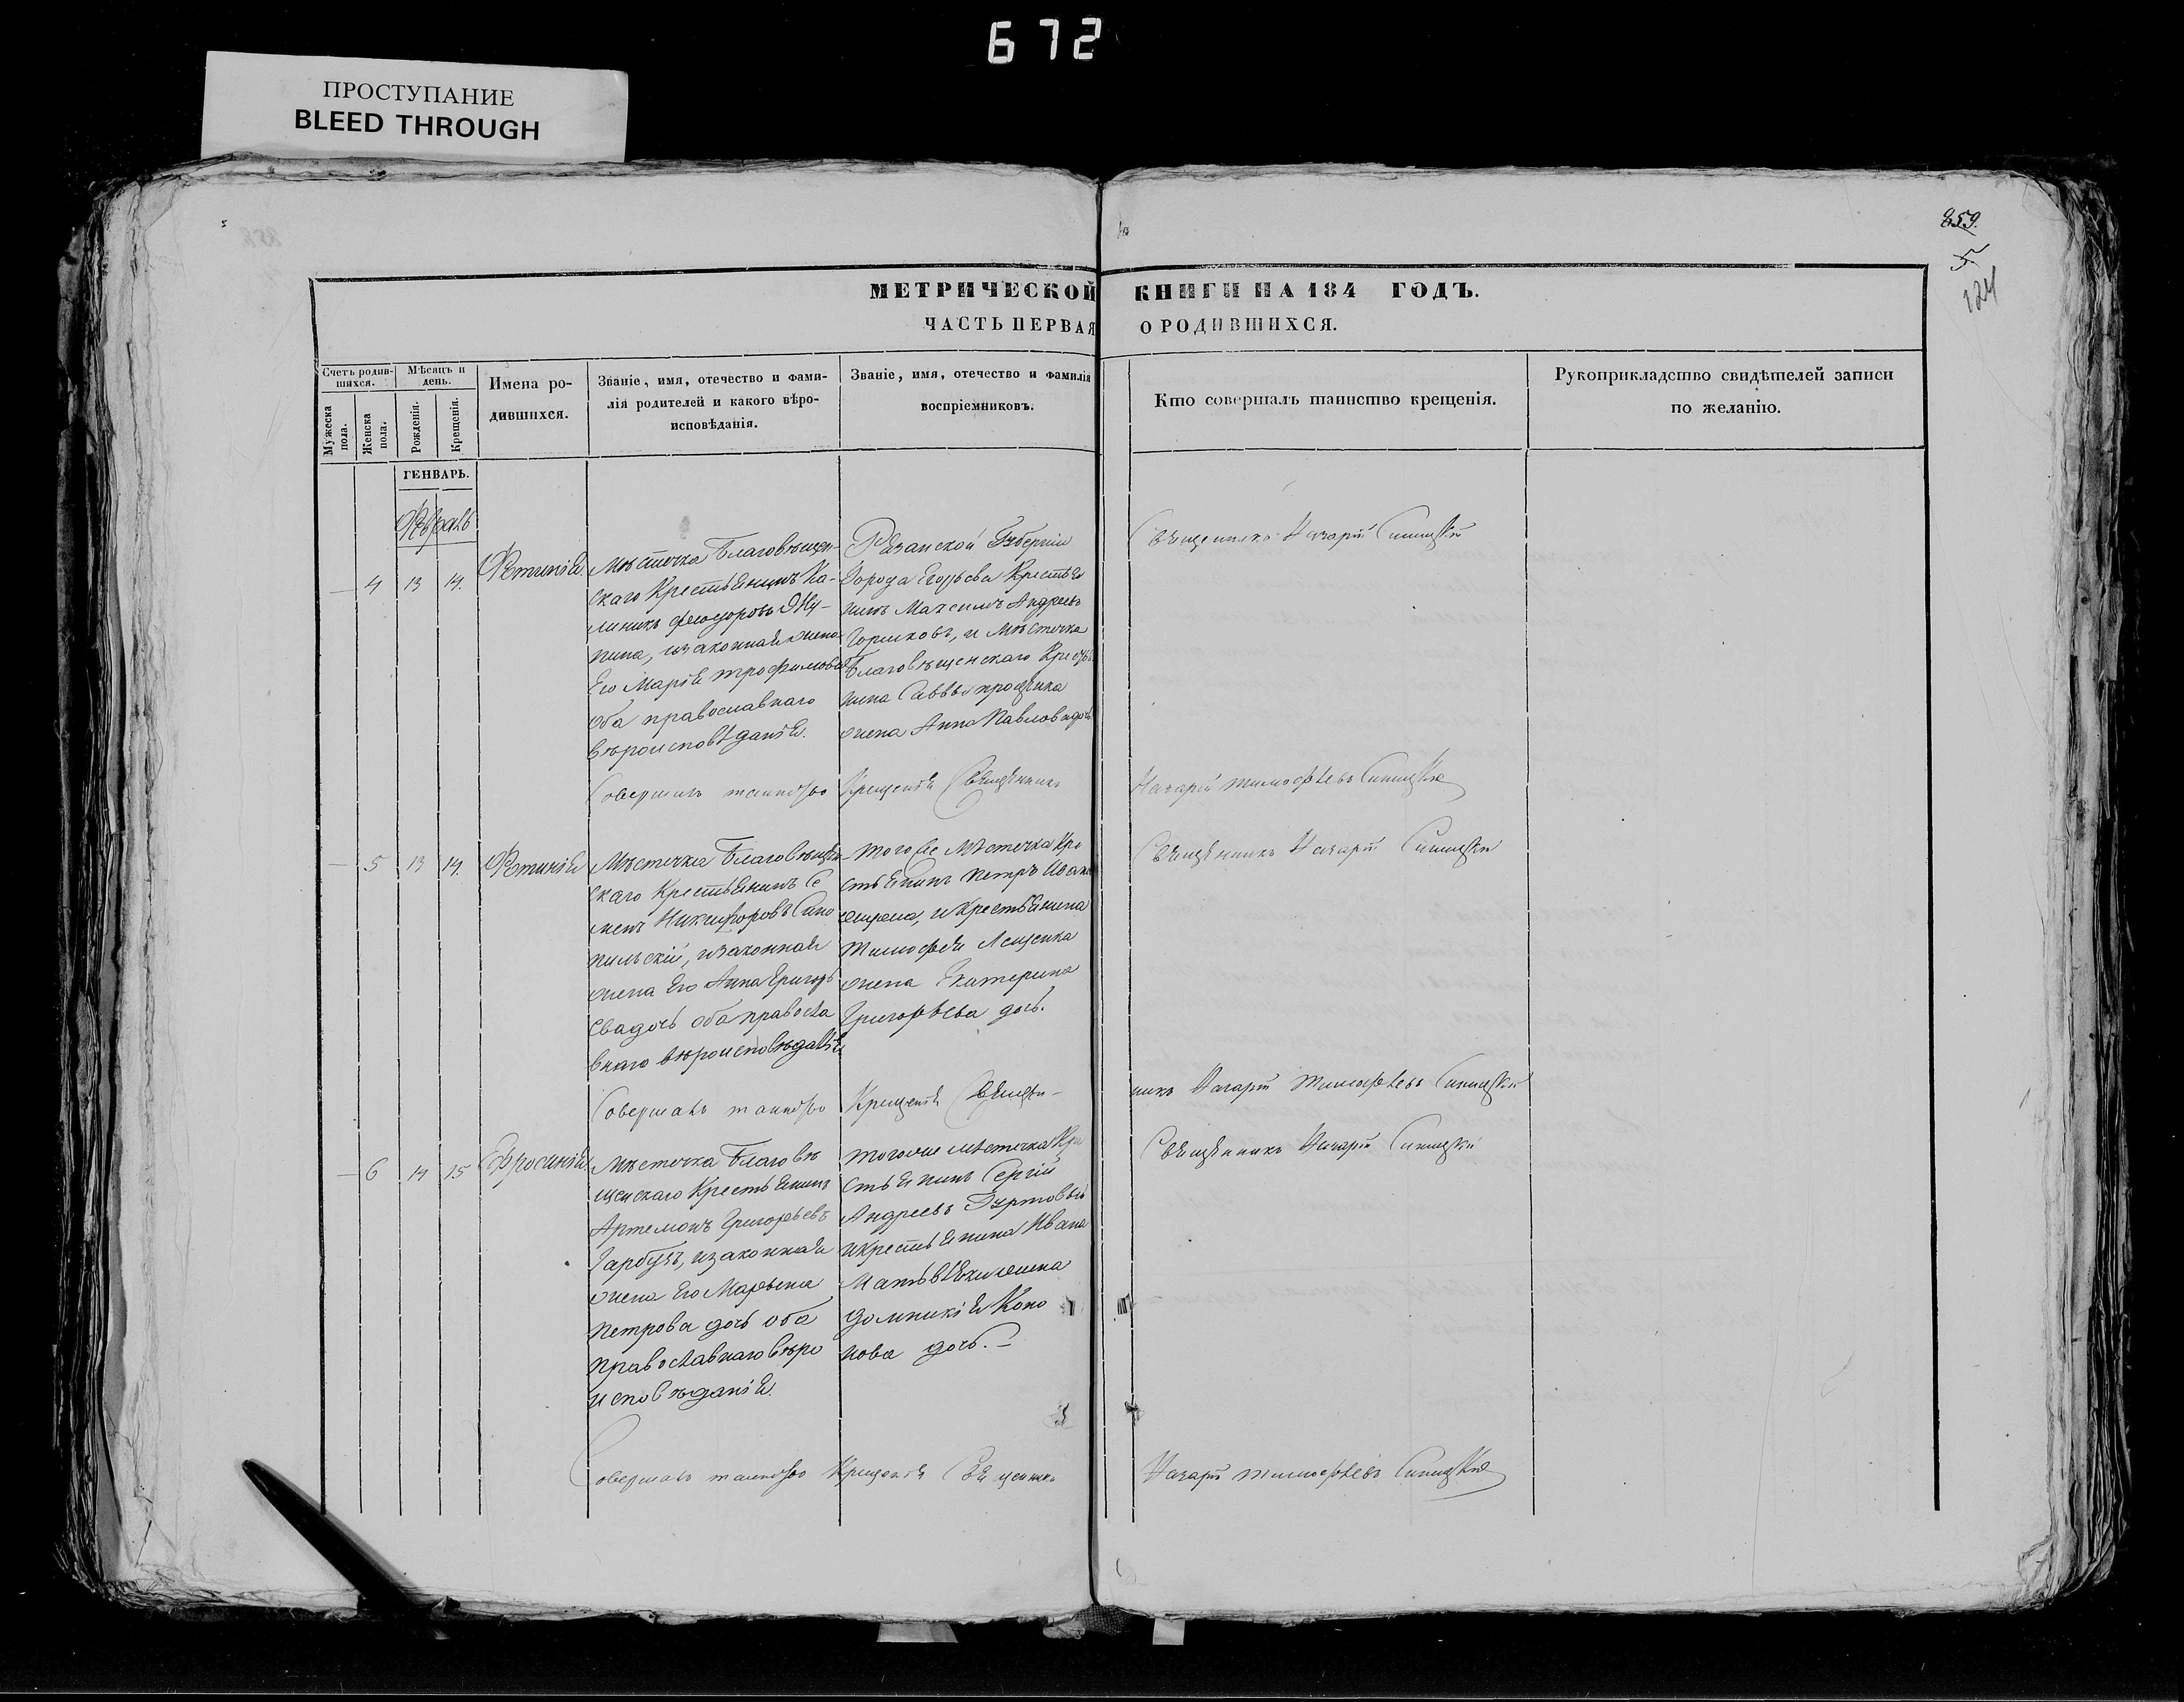 672
ПРОСТУПАНИЕ
BLEED THROUGH
859.
5
124
МЕТРИЧЕСКОЙ КНИГИ НА 184 ГОДЪ.
ЧАСТЬ ПЕРВАЯ О РОДИВШИХСЯ.
Счетъ родив-
шихся.
Мужеска
пола.
Женска
пола.
Мѣсяцъ и
день.
Рожденія.
Крещенія.
Имена ро-
дившихся.
Званіе, имя, отечество и фами-
лія родителей и какого вѣро-
исповѣданія.
Званіе, имя, отечество и фамилія
воспріемниковъ.
Кто совершалъ таинство крещенія.
Рукоприкладство свидѣтелей записи
по желанію.
ГЕНВАРЬ.
Февраль
— 4 13 14.
Фетинія.
Мѣстечка Благовѣщен-
скаго Крестьянинъ Ка-
линикъ Феодоровъ
пина, и законная жена
Его Марія Трофимова
оба православнаго
вѣроисповѣданія.
Рязанской Губерніи
Города Егорьева Крестья
нинъ Максимъ Андреевъ
Горшковъ, и Мѣстечка
Благовѣщенскаго Крестья
нина Саввы
жена Анна Павлова дочь
Священникъ Назарій Синицкій
Совершилъ таинство Крещенія Священникъ Назарій Тимофѣевъ Синицкій
— 5 13 14.
Фетинія
Мѣстечка Благовѣщен
скаго Крестьянинъ Се
менъ Никифоровъ Сино
пильскій, и законная
жена Его Анна Григорь
ева дочь оба правосла
внаго вѣроисповѣданія
Того же Мѣстечка Кре
стьянинъ Петръ
и Крестьянина
Тимофея Лещенка
жена Екатерина
Григорьева дочь.
Священникъ Назарій Синицкій
Совершалъ таинство Крещенія Священ-
никъ Назарій Тимофѣевъ Синицкій
— 6 14 15
Ефросинія
Мѣстечка Благовѣ
щенскаго Крестьянинъ
Артемонъ Григорьевъ
Гарбузъ, и законная
жена Его Марѳена
Петрова дочь оба
православнаго вѣро
исповѣданія.
Того же мѣстечка Кре
стьянинъ Сергій
Андреевъ Гуртовый
и крестьянина Ивана
жена
Домникія Коно
нова дочь. —
Священникъ Назарій Синицкій
Совершалъ таинство Крещенія Священникъ Назарій Тимофѣевъ Синицкій